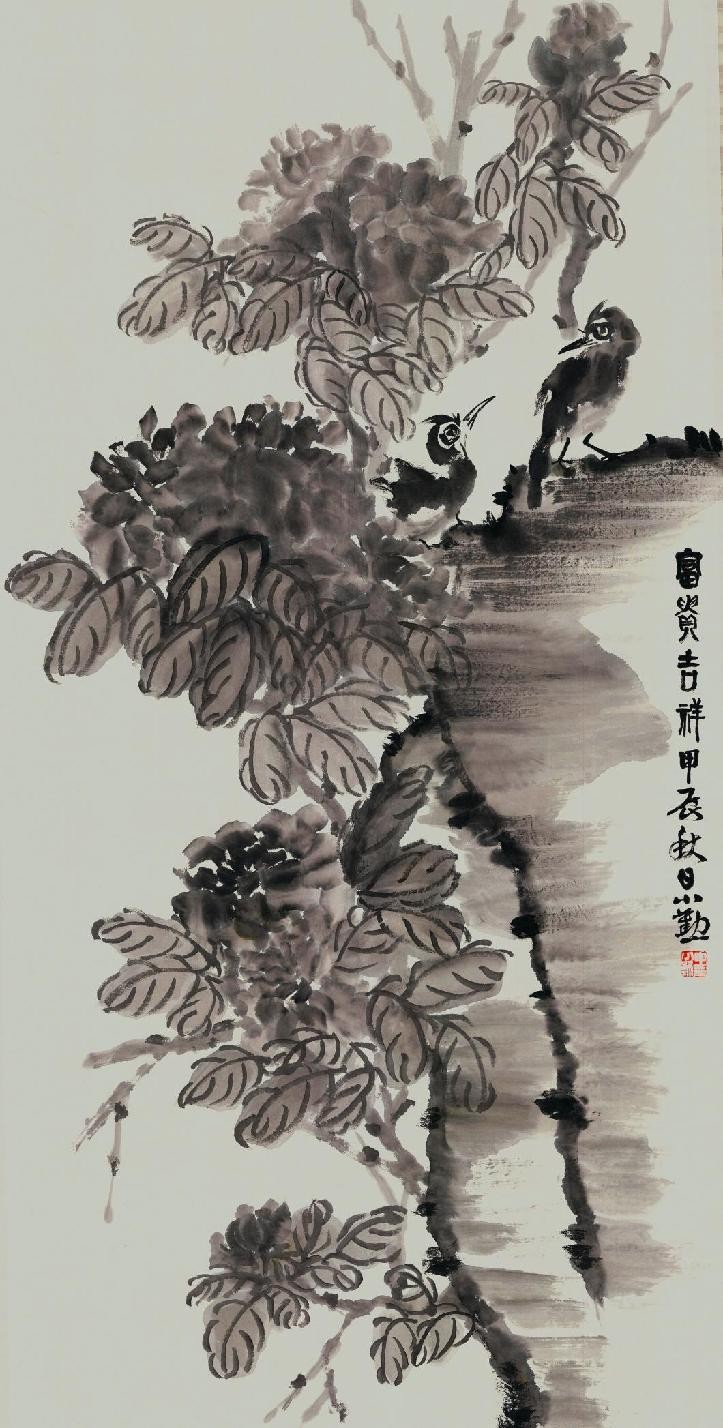 富貴吉祥甲辰秋日小勤